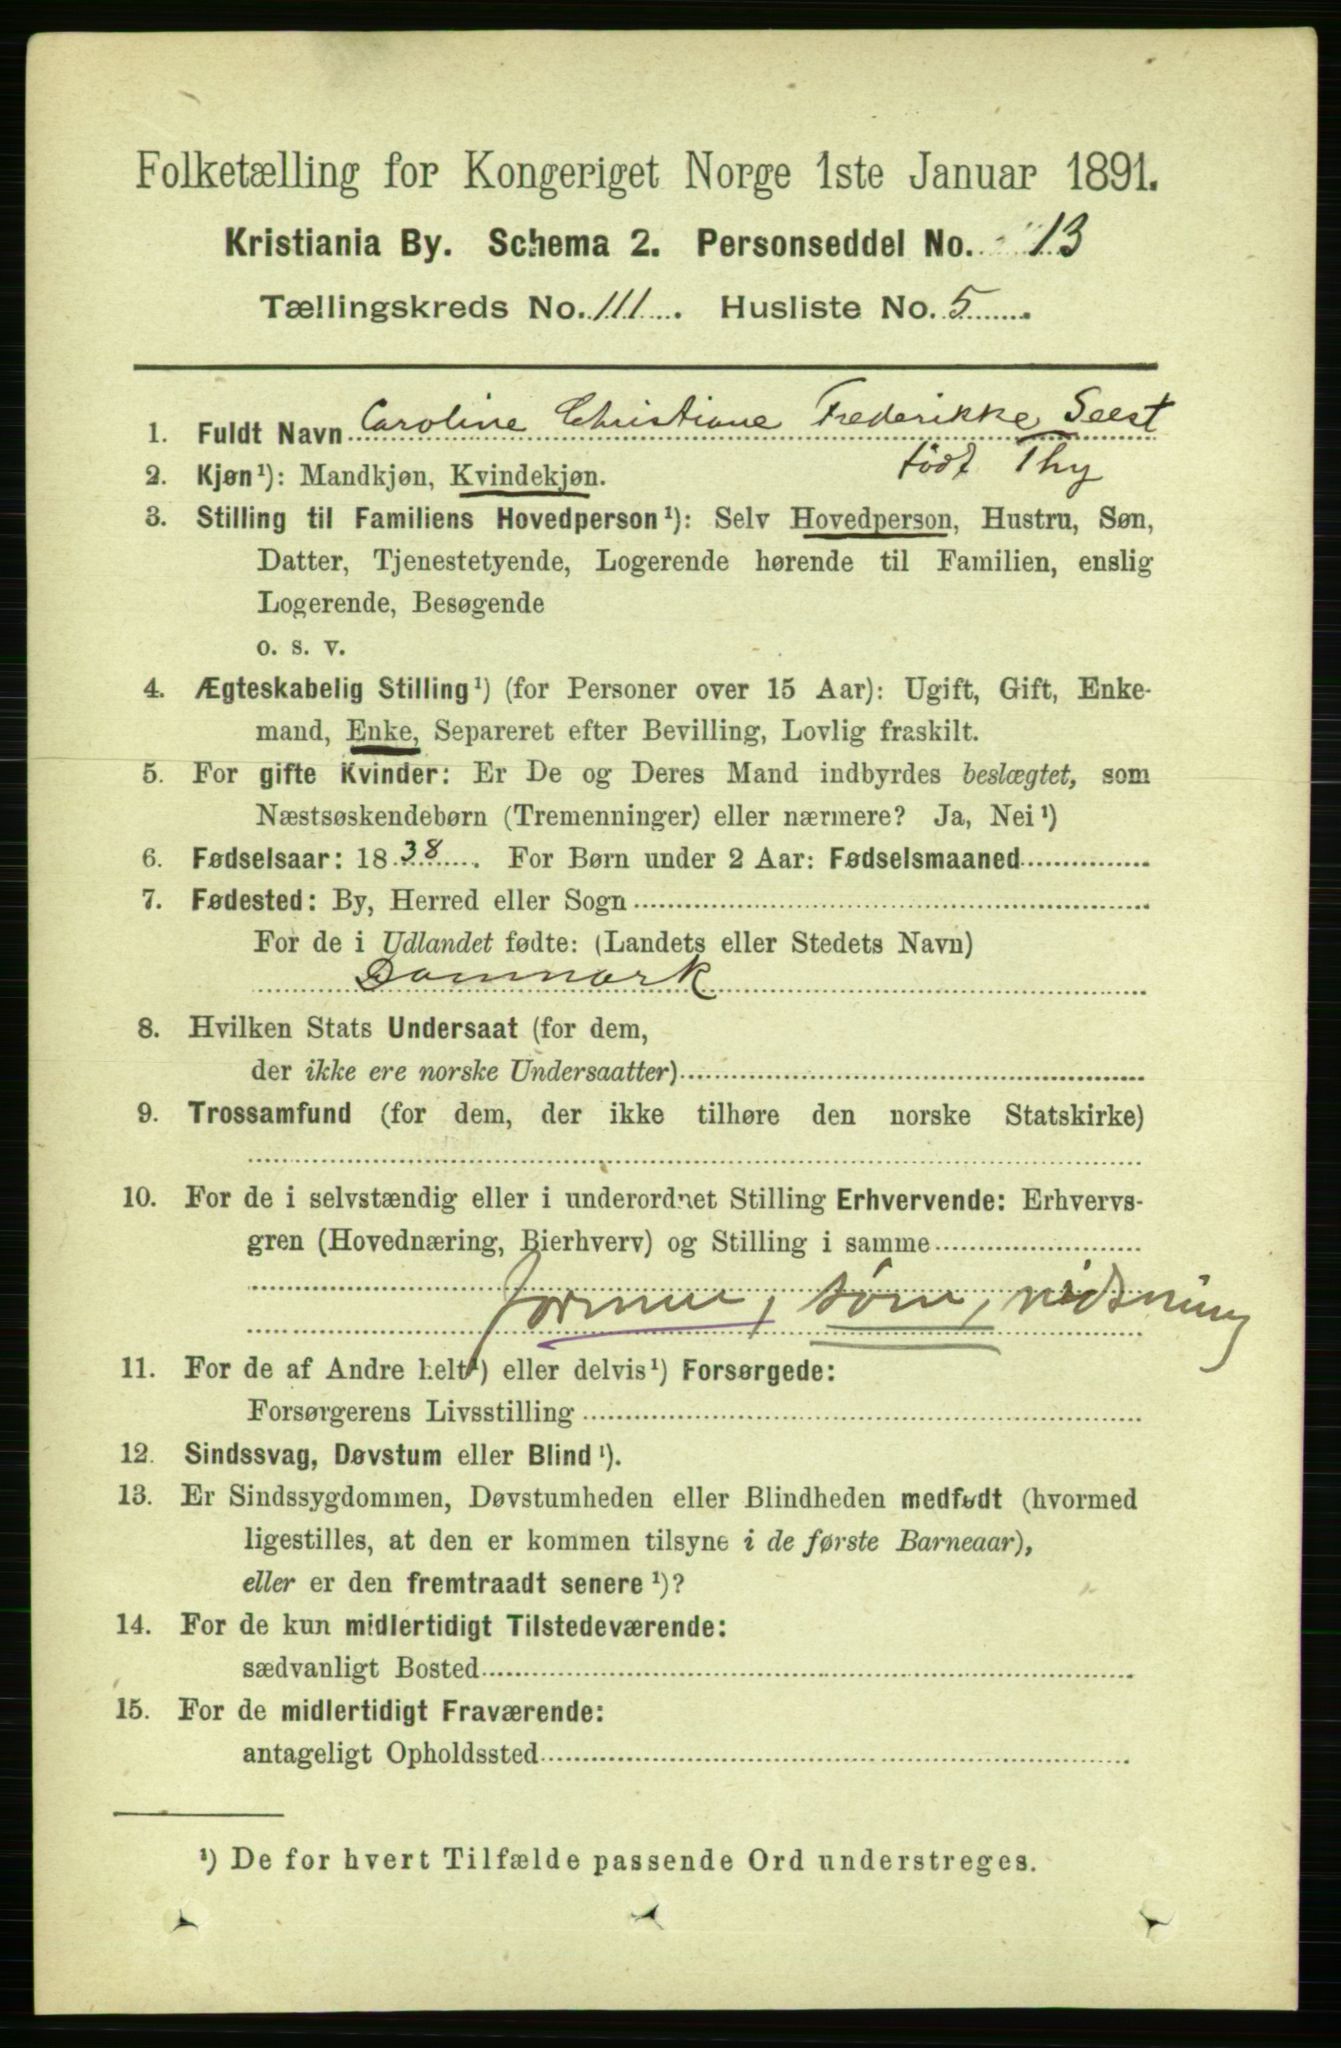 Folketælling for Kongeriget Norge 1ste Januar 1891.
Kristiania By. Schema 2. Personseddel No. 13
Tællingskreds No. 111. Husliste No. 5
1. Fuldt Navn Caroline Christiane Frederikke Seest
født Thy
2. Kjøn¹): Mandkjøn, Kvindekjøn.
3. Stilling til Familiens Hovedperson¹): Selv Hovedperson, Hustru, Søn,
Datter, Tjenestetyende, Logerende hørende til Familien, enslig
Logerende, Besøgende
o. s. v.
4. Ægteskabelig Stilling¹) (for Personer over 15 Aar): Ugift, Gift, Enke-
mand, Enke, Separeret efter Bevilling, Lovlig fraskilt.
5. For gifte Kvinder: Er De og Deres Mand indbyrdes beslægtet, som
Næstsøskendebørn (Tremenninger) eller nærmere? Ja, Nei¹)
6. Fødselsaar: 1838. For Børn under 2 Aar: Fødselsmaaned
7. Fødested: By, Herred eller Sogn
For de i Udlandet fødte: (Landets eller Stedets Navn)
Danmark
8. Hvilken Stats Undersaat (for dem,
der ikke ere norske Undersaatter)
9. Trossamfund (for dem, der ikke tilhøre den norske Statskirke)
10. For de i selvstændig eller i underordnet Stilling Erhvervende: Erhvervs-
gren (Hovednæring, Bierhverv) og Stilling i samme
søm,
11. For de af Andre helt¹) eller delvis¹) Forsørgede:
Forsørgerens Livsstilling
12. Sindssvag, Døvstum eller Blind¹).
13. Er Sindssygdommen, Døvstumheden eller Blindheden medfødt (hvormed
ligestilles, at den er kommen tilsyne i de første Barneaar),
eller er den fremtraadt senere¹)?
14. For de kun midlertidigt Tilstedeværende:
sædvanligt Bosted
15. For de midlertidigt Fraværende:
antageligt Opholdssted
¹) De for hvert Tilfælde passende Ord understreges.